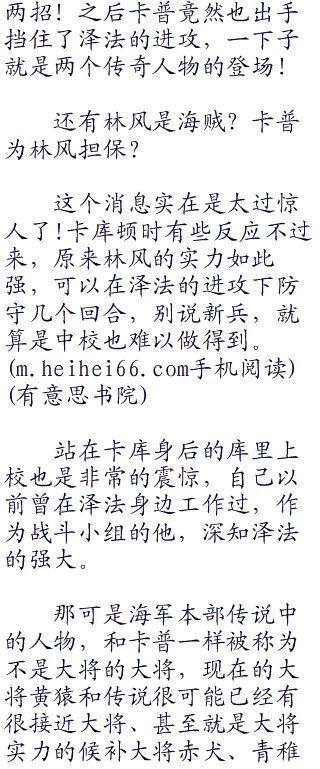 两招！之后卡普竟然也出手
挡住了泽法的进攻，一下子
就是两个传奇人物的登场！
还有林风是海贼？卡普
为林风担保？
这个消息实在是太过惊
人了!卡库顿时有些反应不过
来，原来林风的实力如此
强，可以在泽法的进攻下防
守几个回合，别说新兵，就
算是中校也难以做得到。
(m.heihei66.com手机阅读)
(有意思书院)
站在卡库身后的库里上
校也是非常的震惊，自己以
前曾在泽法身边工作过，作
为战斗小组的他，深知泽法
的强大。
那可是海军本部传说中
的人物，和卡普一样被称为
不是大将的大将，现在的大
将黄猿和传说很可能已经有
很接近大将、甚至就是大将
实力的候补大将赤犬、青稚